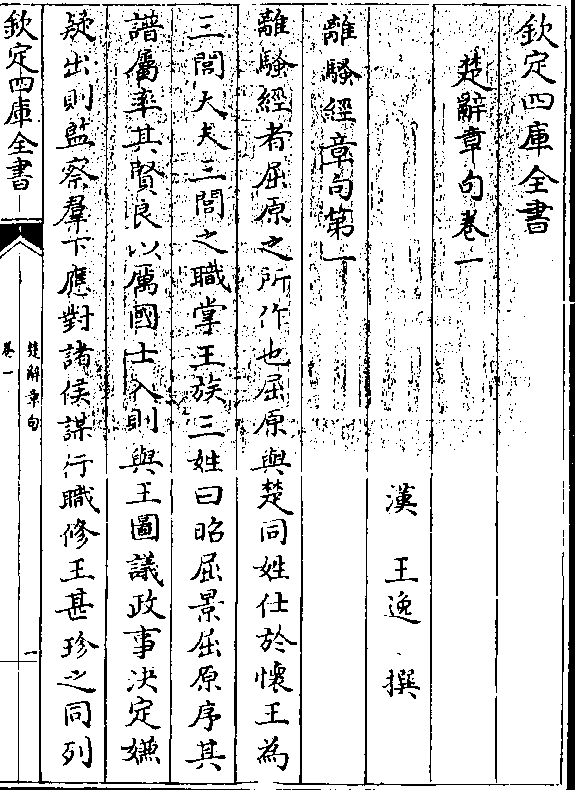 欽定四庫全書
楚辭章句卷一
漢　王逸　撰
離騷經章句第一
離騷經者屈原之所作也屈原與楚同姓仕於懷王為
三閭大夫三閭之職掌王族三姓曰昭屈景屈原序其
譜屬率其賢良以厲國士入則與王圖議政事決定嫌
疑出則監察羣下應對諸侯謀行職修王甚珍之同列
欽定四庫全書
楚辭章句
卷一
一